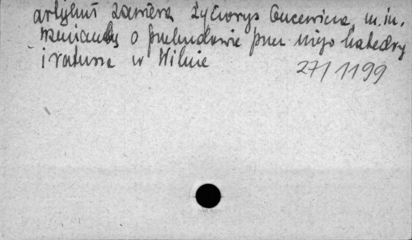 artykuł zawiera życiorys Gucewicza, m.in.
wzmianki o przebudowie przez niego katedry
i ratusza w Wilnie
271/1199